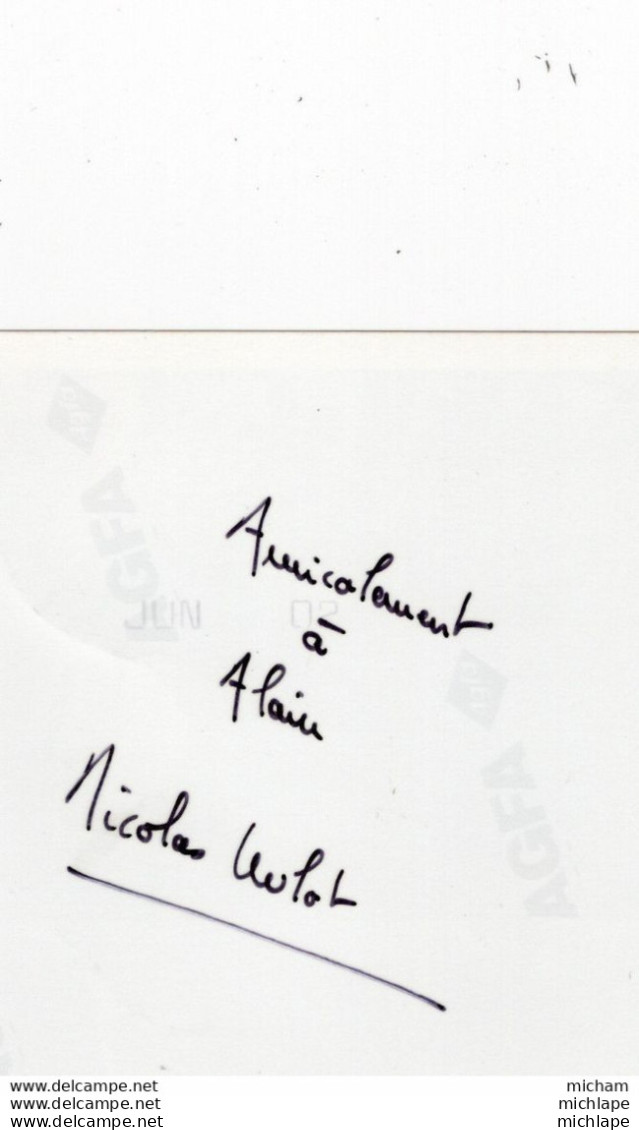 AGFA
Amicalement
JUN 02
à
Alain
AGFA
Nicolas Hulot
www.delcampe.net micham
www.delcampe.net michlape
www.delcampe.net michlape